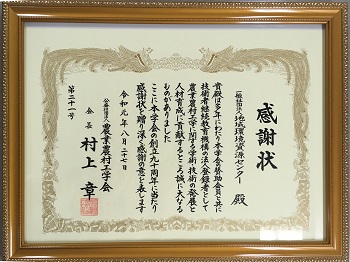 感謝状
一般社団法人地域環境資源センター 殿
貴殿は多年にわたり本学会の賛助会員と共に
技術者継続教育機構の法人登録者として
農業農村工学に関する学術・技術の発展と
人材育成に貢献するところ誠に大なる
ものがありました
ここに本学会の創立九十周年に当たり
感謝状を贈り深く感謝の意を表します
令和元年八月二十七日
公益社団法人農業農村工学会
会長 村上 章
第二十一号